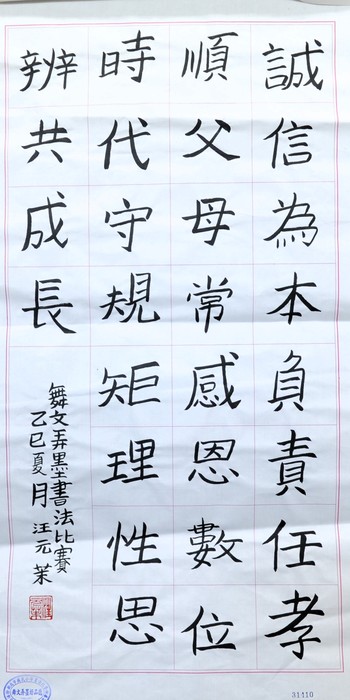 誠信為本負責任孝
順父母常感恩數位
時代守規矩理性思
辨共成長
舞文弄墨書法比賽
乙巳夏月汪元茉
31110